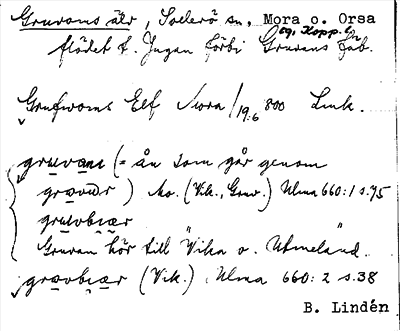 Gruvoms älv, Sollerö sn, Mora o. Orsa
og. Kopp. l.
flödet f. Jugan förbi Gruvans fab.
Elf Mora / 19:6 800 Link.
gruvane (= ån som går genom
gravur ) Mo. (Vik., Gruv.) Ulma 660:1 s.75
gruvbiær
Gruvan hör till "Vika o. Utmeland".
gravbiær (Vik.) Ulma 660: 2 s.38
B. Lindén